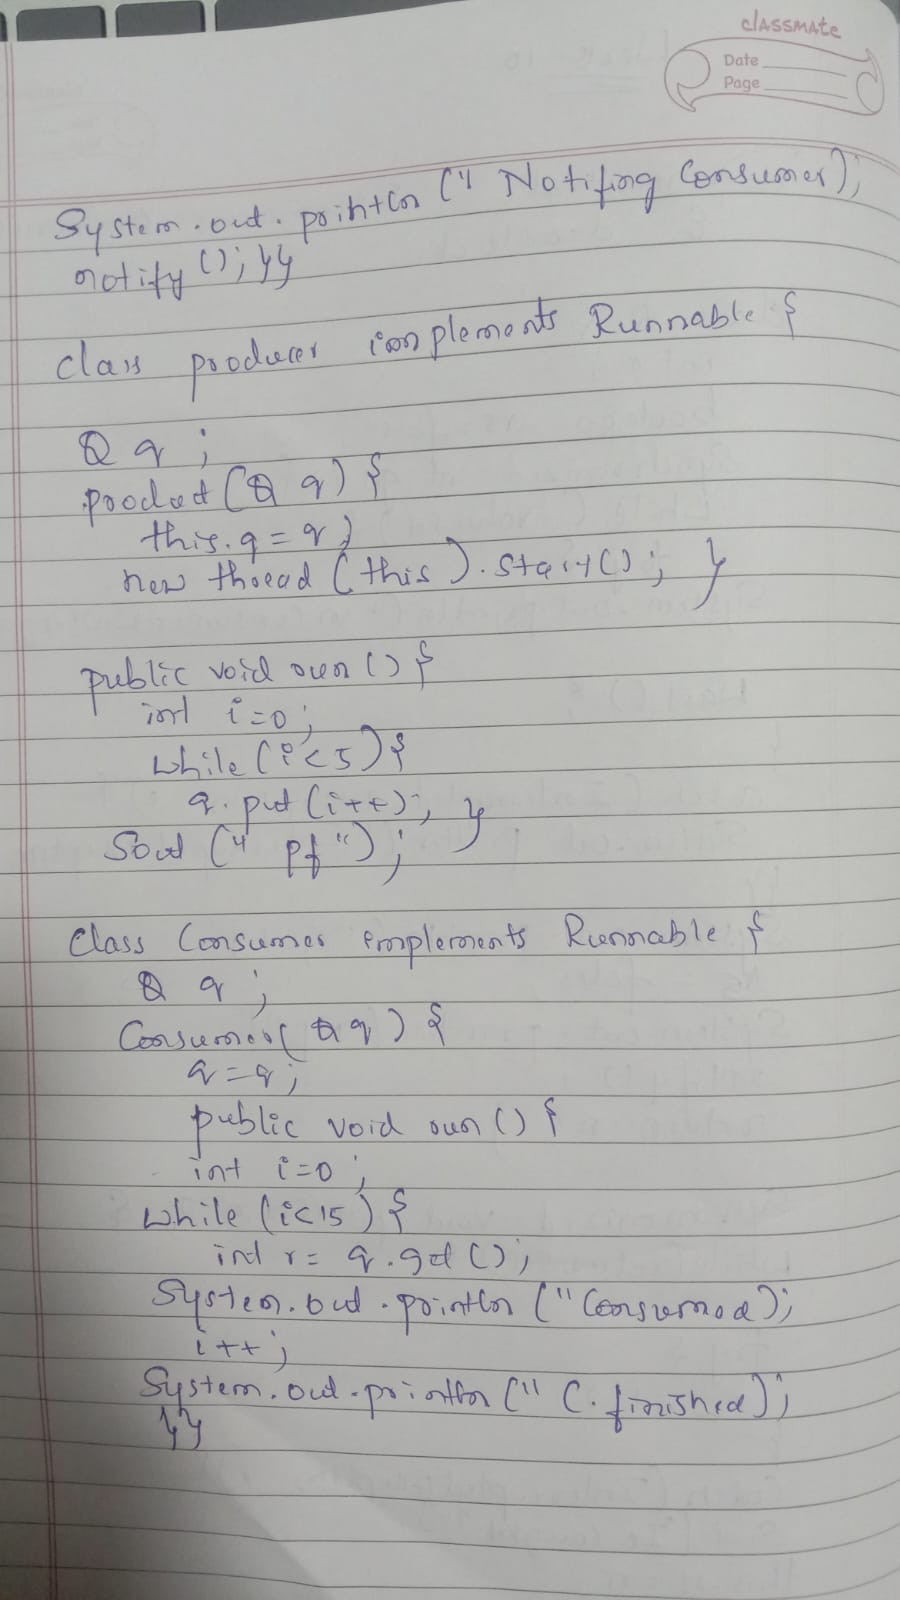 classmate
Date
Page
System.out.println (" Notifing Consumer);
notify (); }}
class producer implements Runnable {
Q q ;
product (Q q) {
this.q = q ;
new thread (this ). start() ; }
public void run () {
int i=0 ;
while (i<5) {
q. put (i++); }
Sout (" pf ") ;
Class Consumer implements Runnable {
Q q ;
Consumer( Q q ) {
q = q ;
public void run () {
int i=0 ;
while (i<15 ) {
int r= q .get () ;
System.out.println (" Consumed);
i++ ;
System.out.println (" C.finished);
}}